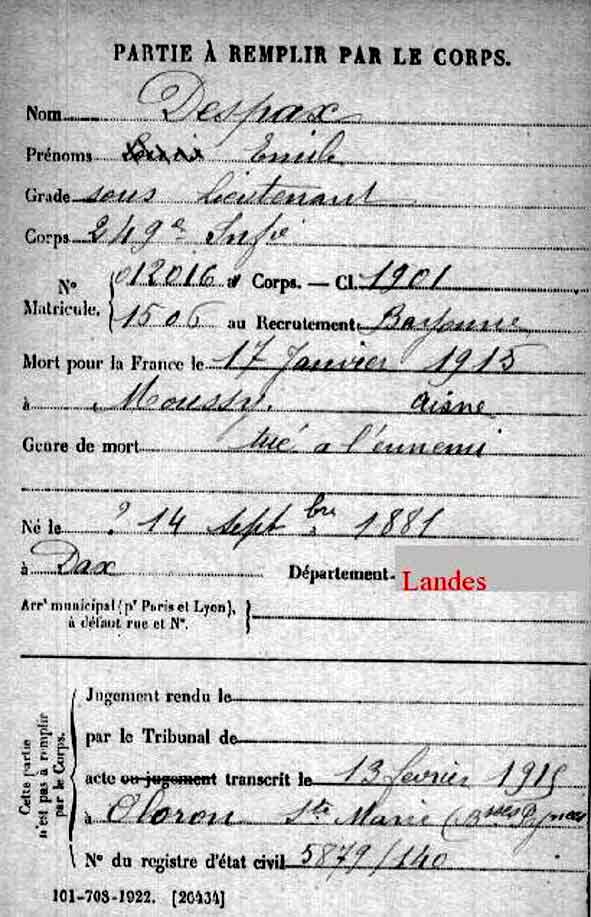 PARTIE À REMPLIR PAR LE CORPS.
Nom Despax
Prénoms Louis Emile
Grade sous lieutenant
Corps 249e Infie
N° Matricule. { 012016 au Corps. — Cl. 1901
1506 au Recrutement Bayonne
Mort pour la France le 17 Janvier 1915
à Moussy. Aisne
Genre de mort tué a l'ennemi
Né le ? 14 Septbre 1881
à Dax Département Landes
Arrt municipal (pr Paris et Lyon),
à défaut rue et N°.
Cette partie n'est pas à remplir par le Corps.
Jugement rendu le
par le Tribunal de
acte ou jugement transcrit le 13 février 1915
à Oloron Ste Marie (Bsses Pyrnées
N° du registre d'état civil 5879/140
101-708-1922. [26434]